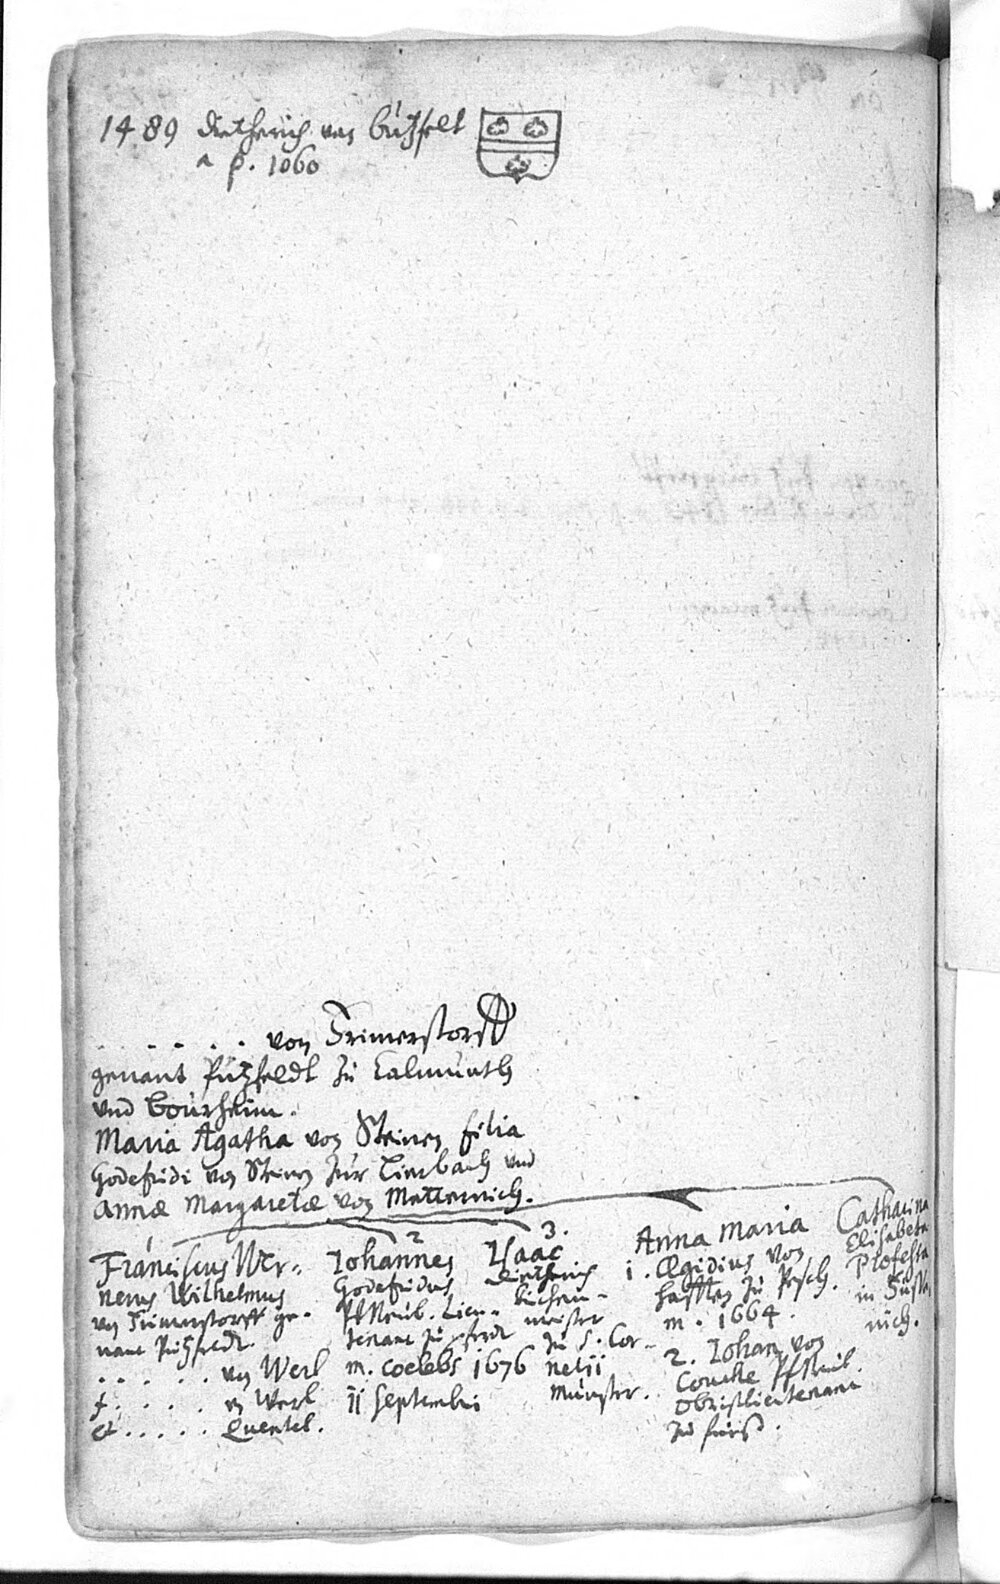 1489 Dietherich von Bützfelt
a p. 1060
. . . . . . von Trimerstorff
genant Pützfeldt zu Calmunth
und Bourheim.
Maria Agatha von Steinen filia
Godefridi von Steinen zur Limbach und
Annæ Margaretæ von Metternich.
1 2 3.
Franciscus Wer-
nerus Wilhelmus
von Trimerstorff ge-
nant Pützfeldt.
. . . . . von Werl
f. . . . . v Werl
et . . . . . Quentel.
Johannes
Godefridus
Pf Neub. Lieu-
tenant zu pferdt
m. coelebs 1676
11 Septembris
Isaac
Dietherich
kuchen-
meister
zu S. Cor-
nelii
Münster.
Anna Maria
1. Ægidius von
Hafften zu Pesch.
m. 1664.
2. Johan von
Coucke Pf Neub.
Obristlieutenant
zu fuess.
Catharina
Elisabeta
Professa
in Füsse-
nich.